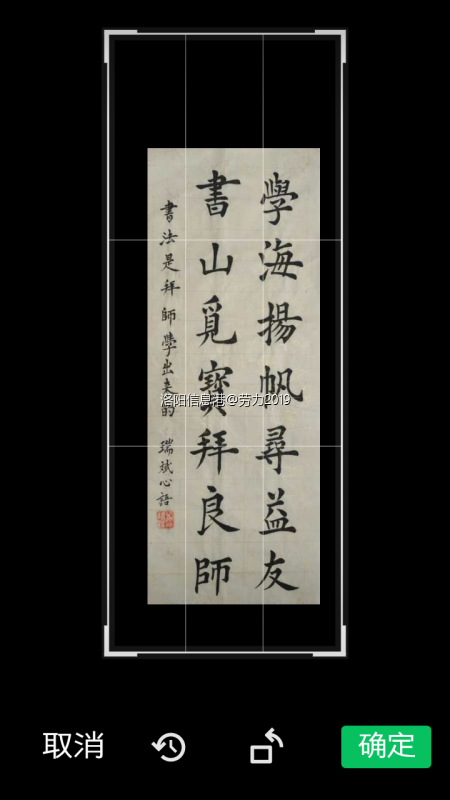 學海揚帆尋益友
書山覓寶拜良師
書法是拜師學出来的
瑞斌心語
洛阳信息港@劳力2019
取消
确定